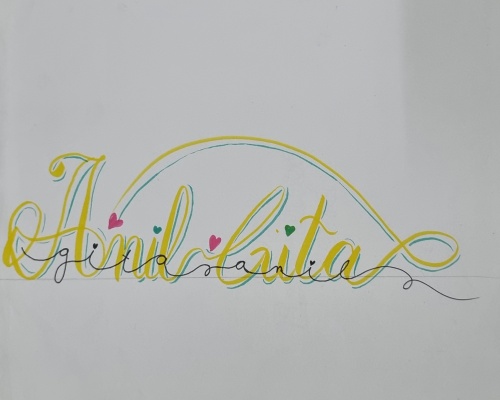 Anil Gita
gita anil